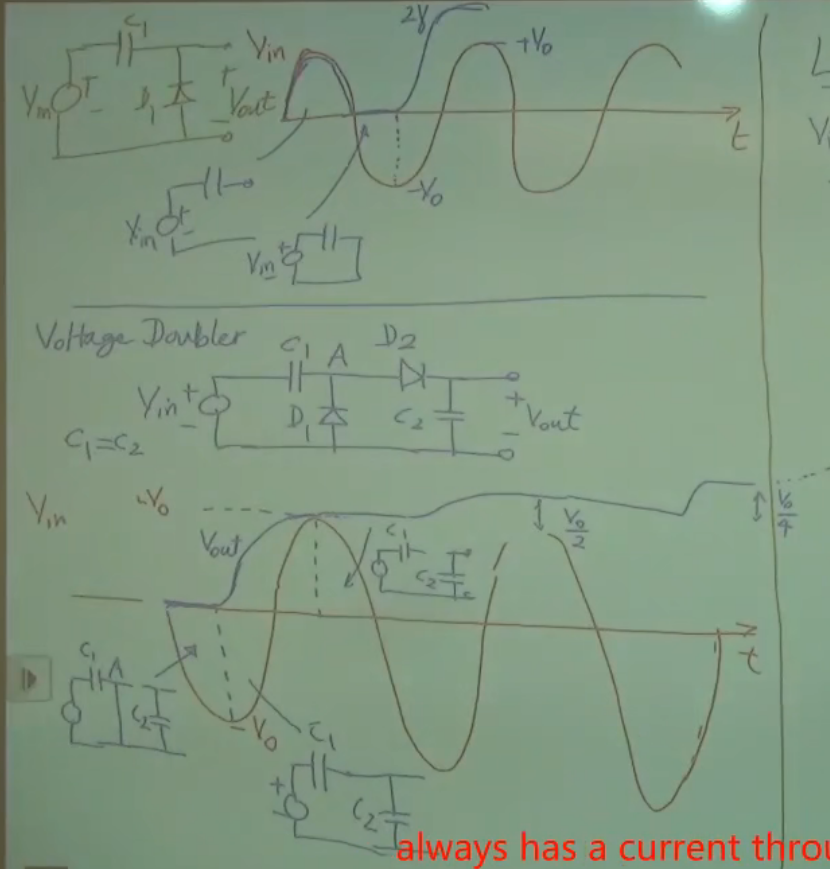 C₁
Vin
+
−
D₁
+
Vout
−
Vin
2V
+V₀
−V₀
t
Vin
+
−
Vin
+
−
Voltage Doubler
C₁ A D₂
Vin
+
−
D₁
C₂
+
Vout
−
C₁=C₂
Vin
+V₀
Vout
C₁
C₂
V₀/2
V₀/4
t
C₁ A
C₂
−V₀
C₁
+
−
C₂
always has a current throu